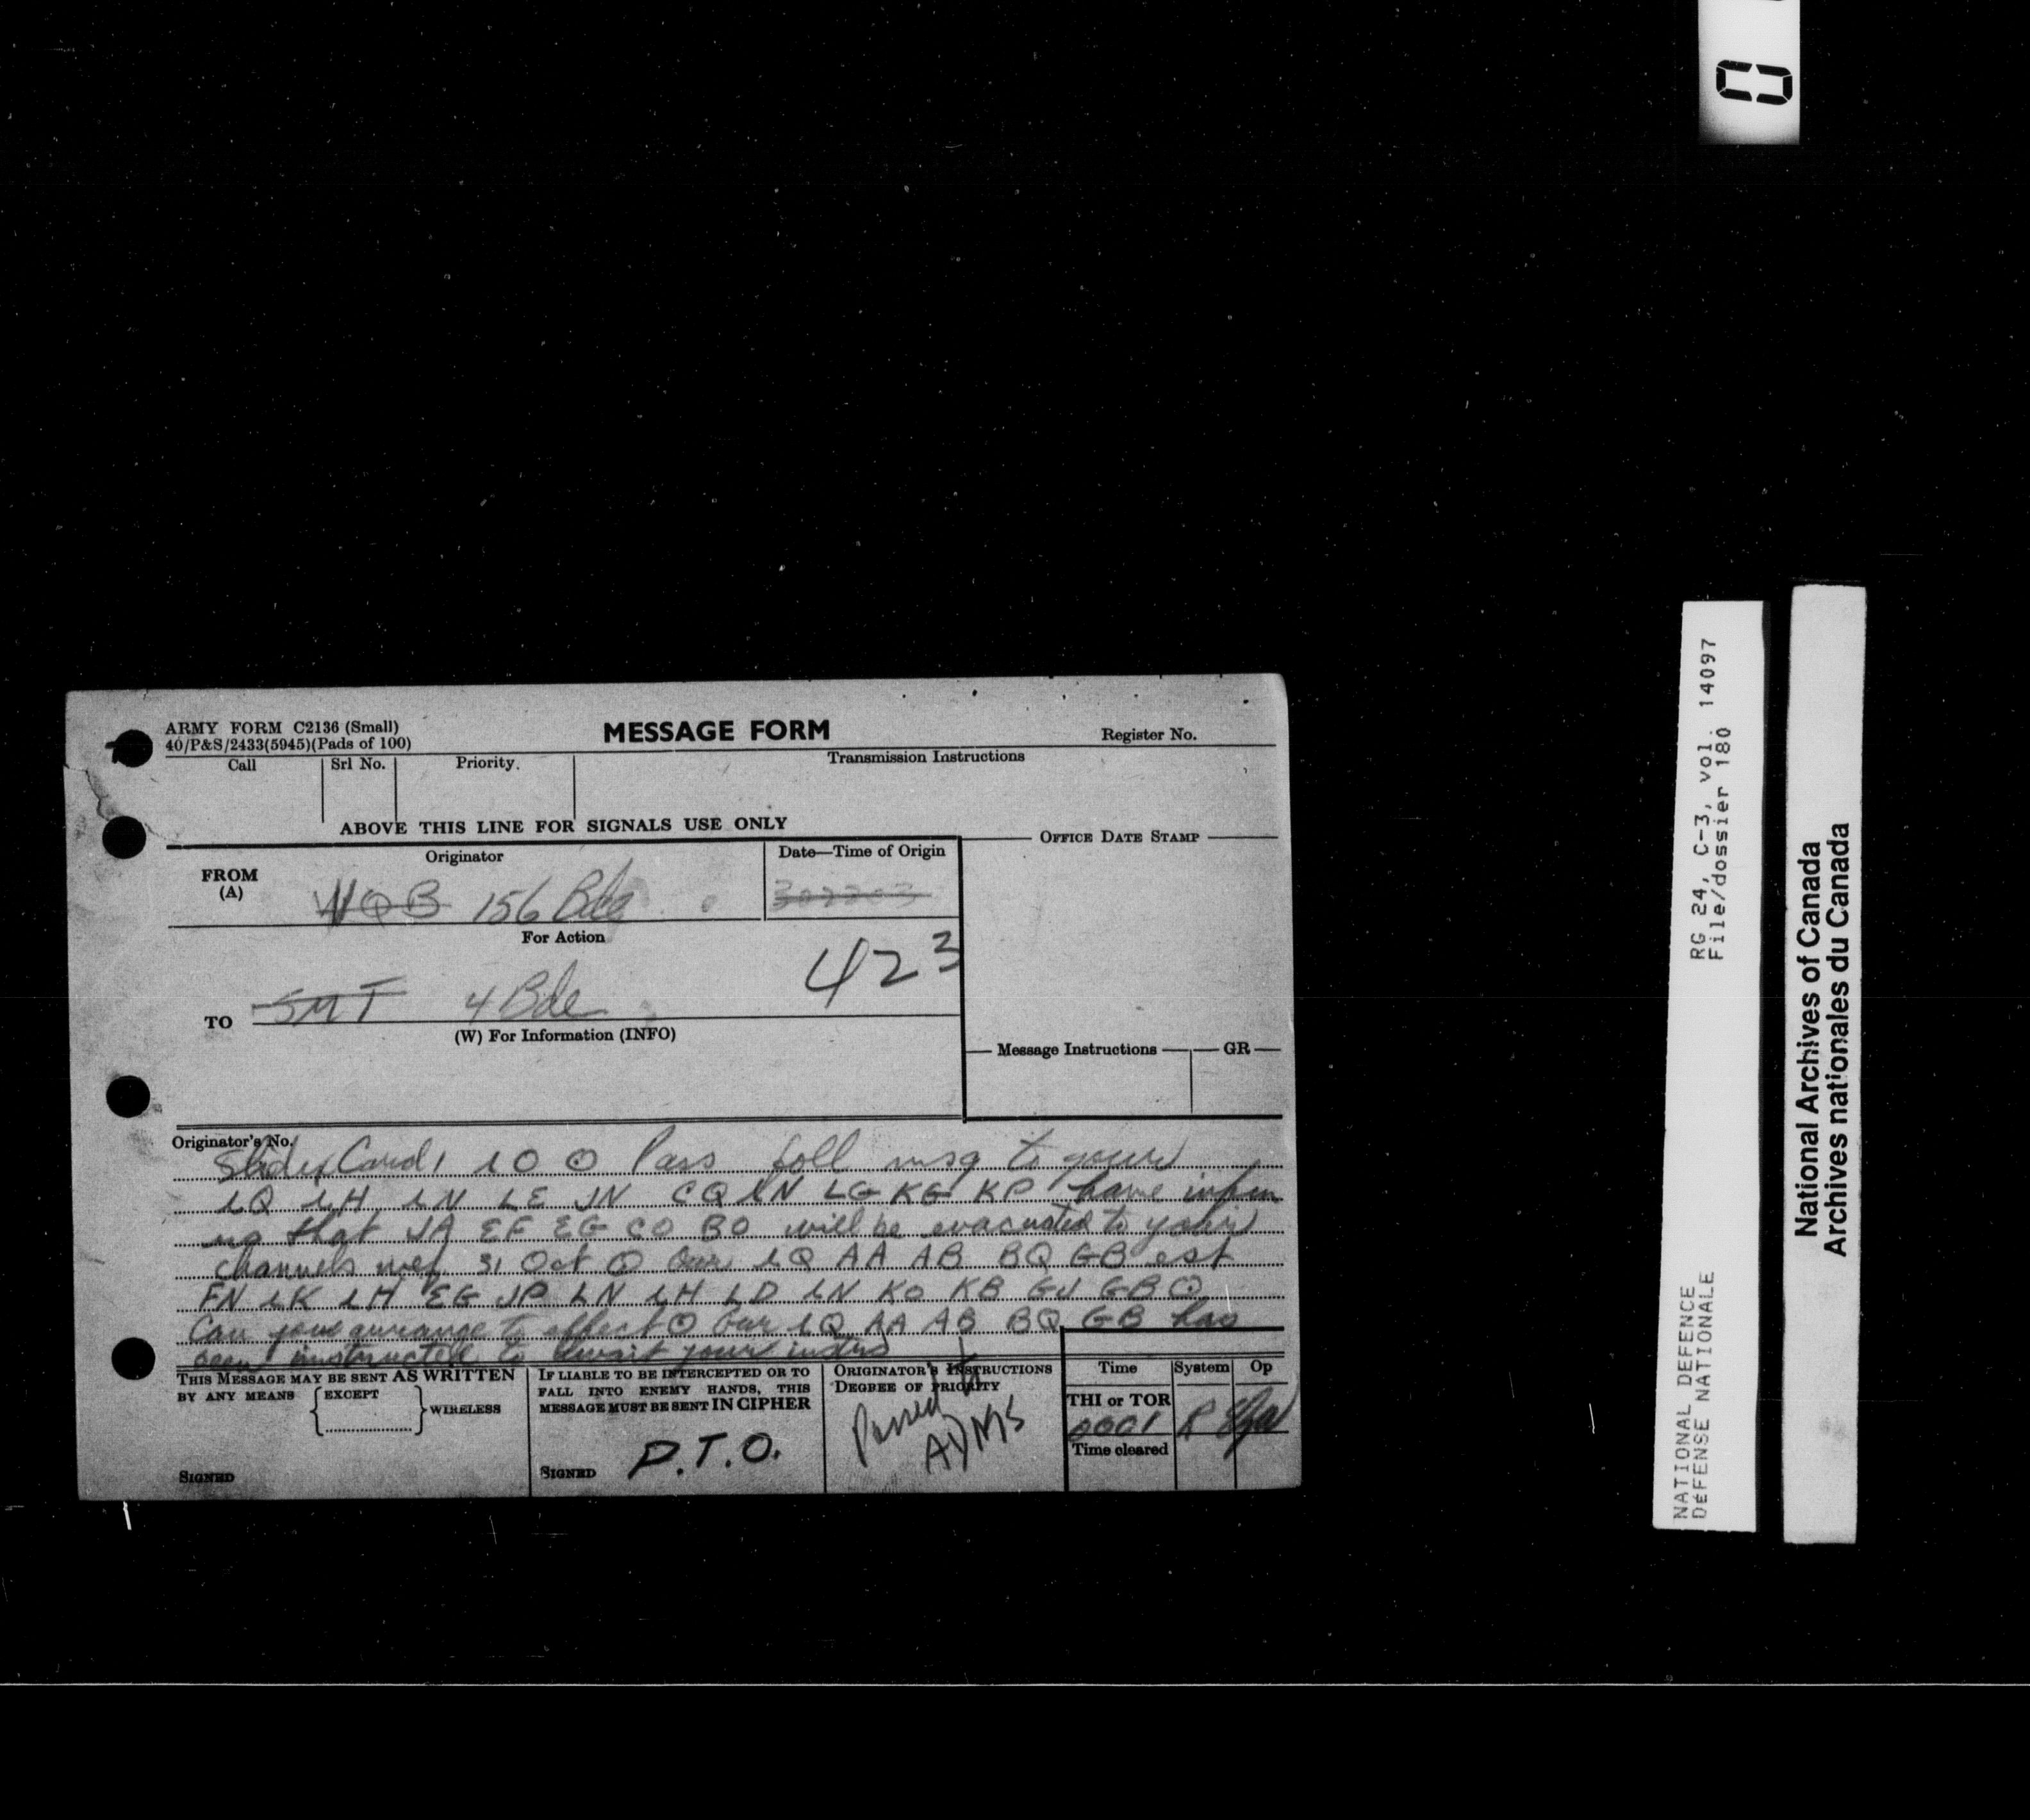 ARMY FORM C2136 (Small)
40/P&S/2433(5945)(Pads of 100)
MESSAGE FORM
Register No.
Call
Srl No.
Priority.
Transmission Instructions
ABOVE THIS LINE FOR SIGNALS USE ONLY
OFFICE DATE STAMP
FROM
(A)
Originator
Date—Time of Origin
156 Bde
For Action
423
TO
SMT 4 Bde
(W) For Information (INFO)
Message Instructions
GR
Originator's No.
Slidex Card, 10 ⊙ Pass foll msg to your
LQ LH LN LE JN CQ LN LG KG KP have
that JA EF EG CO BO will be evacuated to your
channels wef 31 Oct ⊙ Our LQ AA AB BQ GB est
FN LK LH EG JP LN LH LD LN KO KB GJ GB ⊙
Can you arrange to effect ⊙ Our LQ AA AB BQ GB has
been instructed to await your instrs
THIS MESSAGE MAY BE SENT AS WRITTEN
BY ANY MEANS { EXCEPT } WIRELESS
SIGNED
IF LIABLE TO BE INTERCEPTED OR TO
FALL INTO ENEMY HANDS, THIS
MESSAGE MUST BE SENT IN CIPHER
SIGNED P.T.O.
ORIGINATOR'S INSTRUCTIONS
DEGREE OF PRIORITY
Passed to
ADMS
Time
System
Op
THI or TOR
0001 R
Time cleared
RG 24, C-3, vol. 14097
File/dossier 180
NATIONAL DEFENCE
DÉFENSE NATIONALE
National Archives of Canada
Archives nationales du Canada